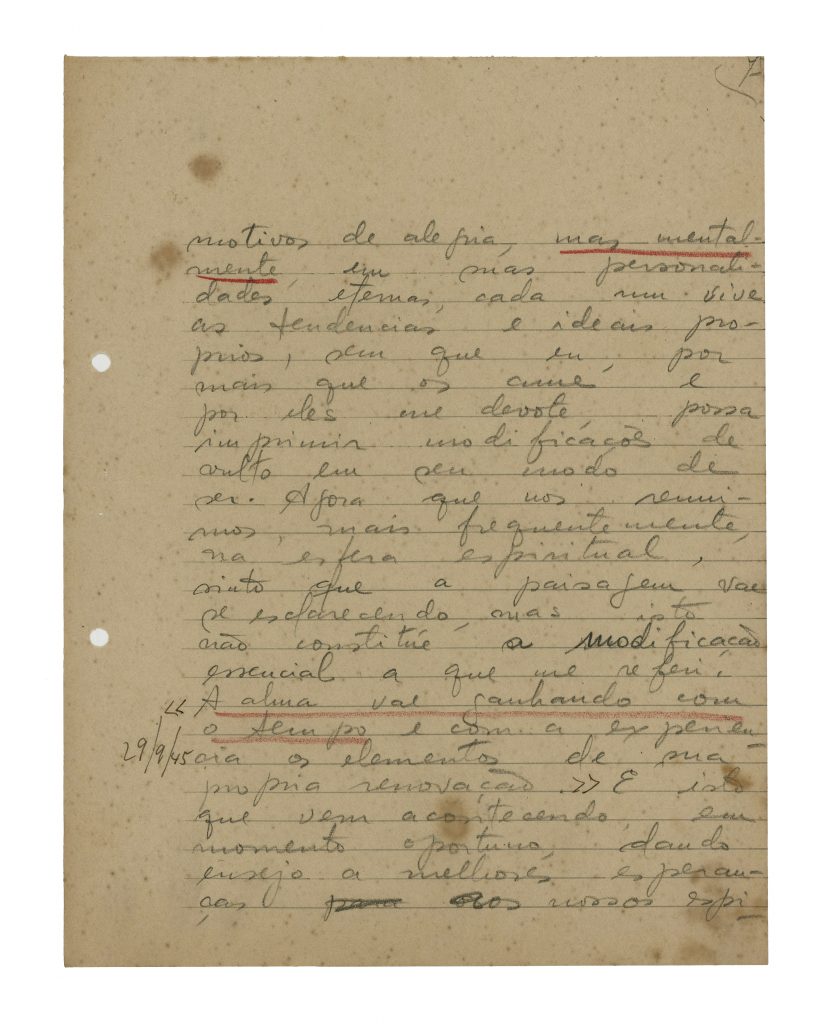 7-
motivos de alegria, mas mental-
mente, em suas personali-
dades eternas, cada um vive
as tendencias e ideais pro-
prios, sem que eu, por
mais que os ame e
por eles me devote possa
imprimir modificações de
vulto em seu modo de
ser. Agora que nos reuni-
mos, mais frequentemente,
na esfera espiritual,
sinto que a paisagem vae
se esclarecendo, mas isto
não constitúe a modificação
essencial a que me referi.
« A alma vae ganhando com
o tempo e com a experien
29/9/45 cia os elementos de sua
propria renovação.» E isto
que vem acontecendo em
momento oportuno, dando
ensejo a melhores esperan-
ças para aos nossos espi-